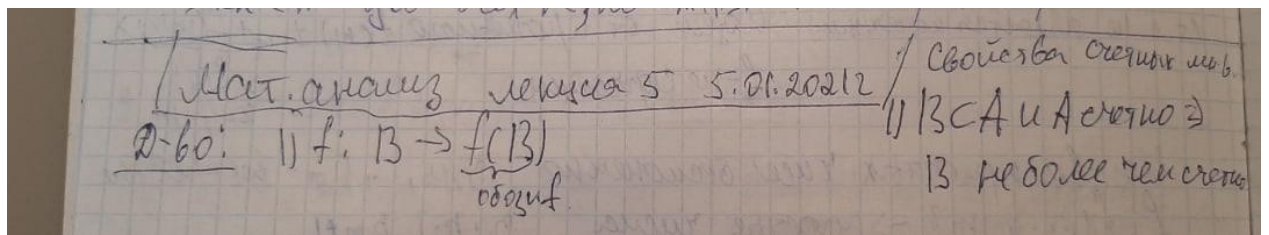 Мат. анализ лекция 5 5.01.2021г
Д-во: 1) f: B → f(B)
обозн f.
Свойства счетных мн-в.
1) B ⊂ A и A счетно ⇒
B не более чем счетно